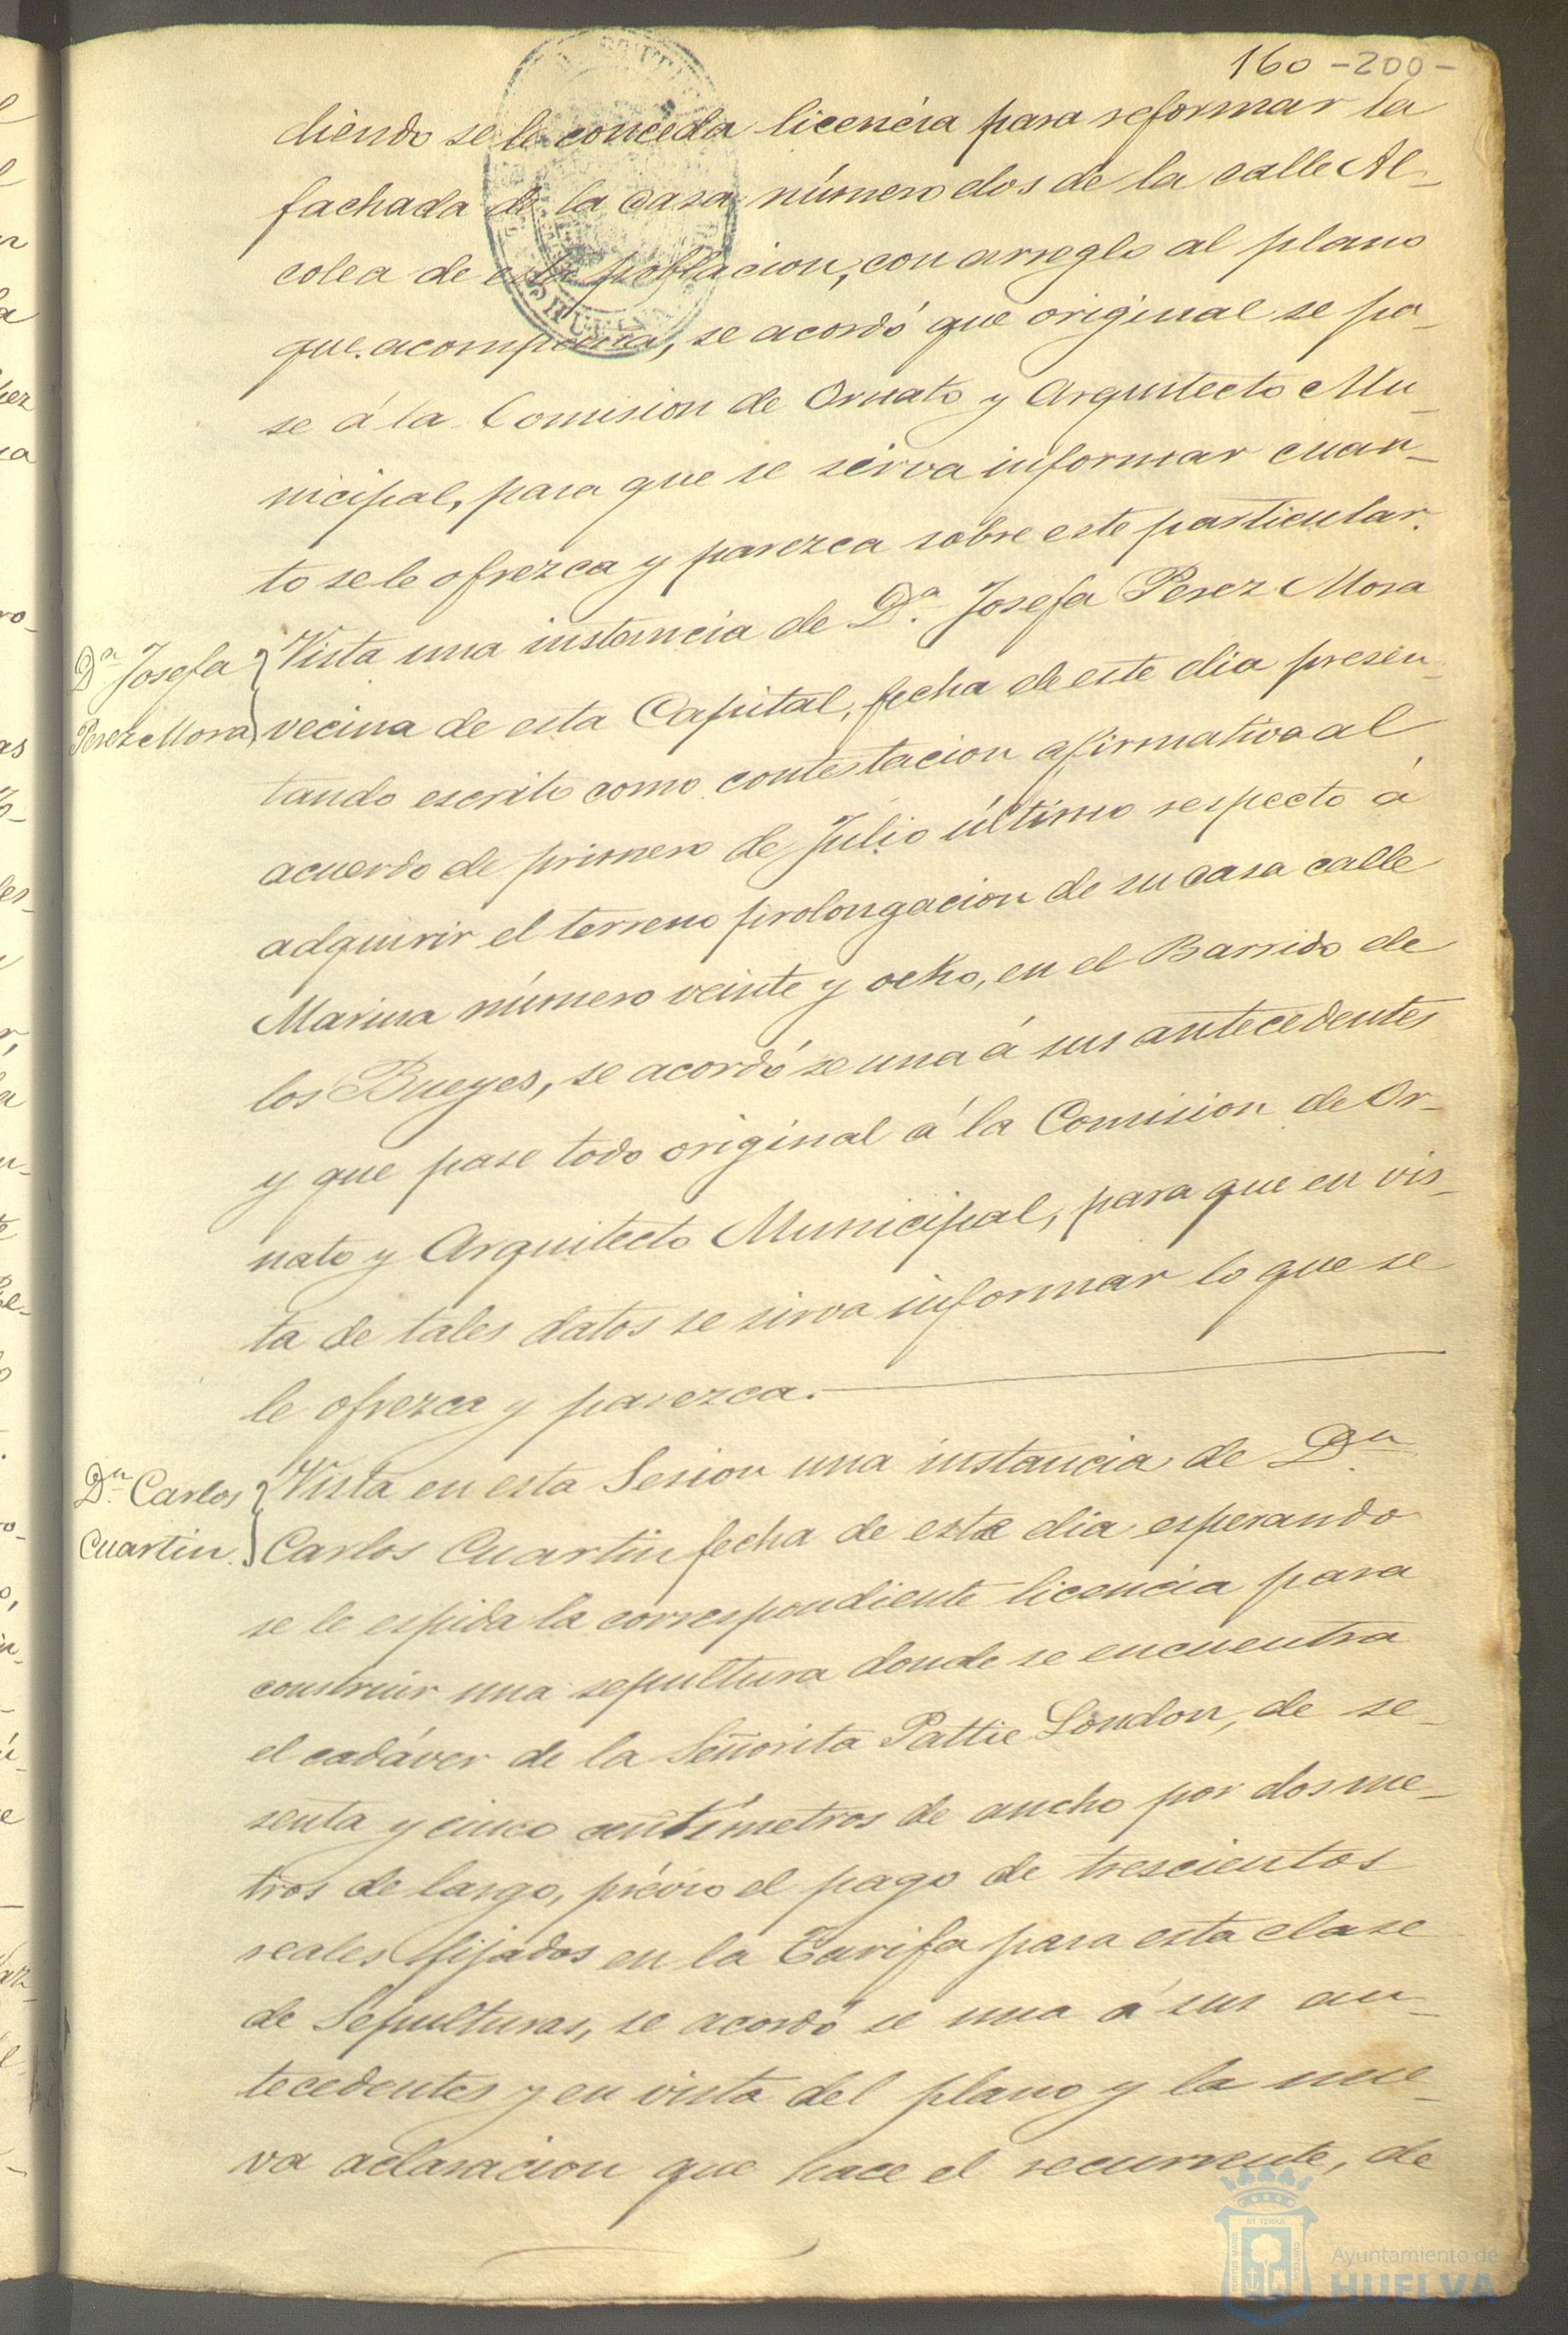 160 -200-
diendo se le conceda licencia para reformar la
fachada de la casa número dos de la calle Al-
colea de esta poblacion, con arreglo al plano
que acompaña, se acordó que original se pa-
se á la Comision de Ornato y Arquitecto Mu-
nicipal, para que se sirva informar cuan-
to se le ofrezca y parezca sobre este particular.
Dª Josefa
Perez Mora
Vista una instancia de Dª. Josefa Perez Mora
vecina de esta Capital, fecha de este dia presen-
tando escrito como contestacion afirmativa al
acuerdo de primero de Julio último respecto á
adquirir el terreno prolongacion de su casa calle
Marina número veinte y ocho, en el Barrido de
los Bueyes, se acordó se una á sus antecedentes
y que pase todo original á la Comision de Or-
nato y Arquitecto Municipal, para que en vis-
ta de tales datos se sirva informar lo que se
le ofrezca y parezca.
Dn. Carlos
Cuartin.
Vista en esta Sesion una instancia de Dn.
Carlos Cuartin fecha de este dia esperando
se le espida la correspondiente licencia para
construir una sepultura donde se encuentra
el cadáver de la Señorita Pattie London, de se-
senta y cinco centímetros de ancho por dos me-
tros de largo, prévio el pago de trescientos
reales fijados en la Tarifa para esta clase
de Sepulturas, se acordó se una á sus an-
tecedentes y en vista del plano y la nue-
va aclaracion que hace el recurrente, de
Ayuntamiento de
HUELVA